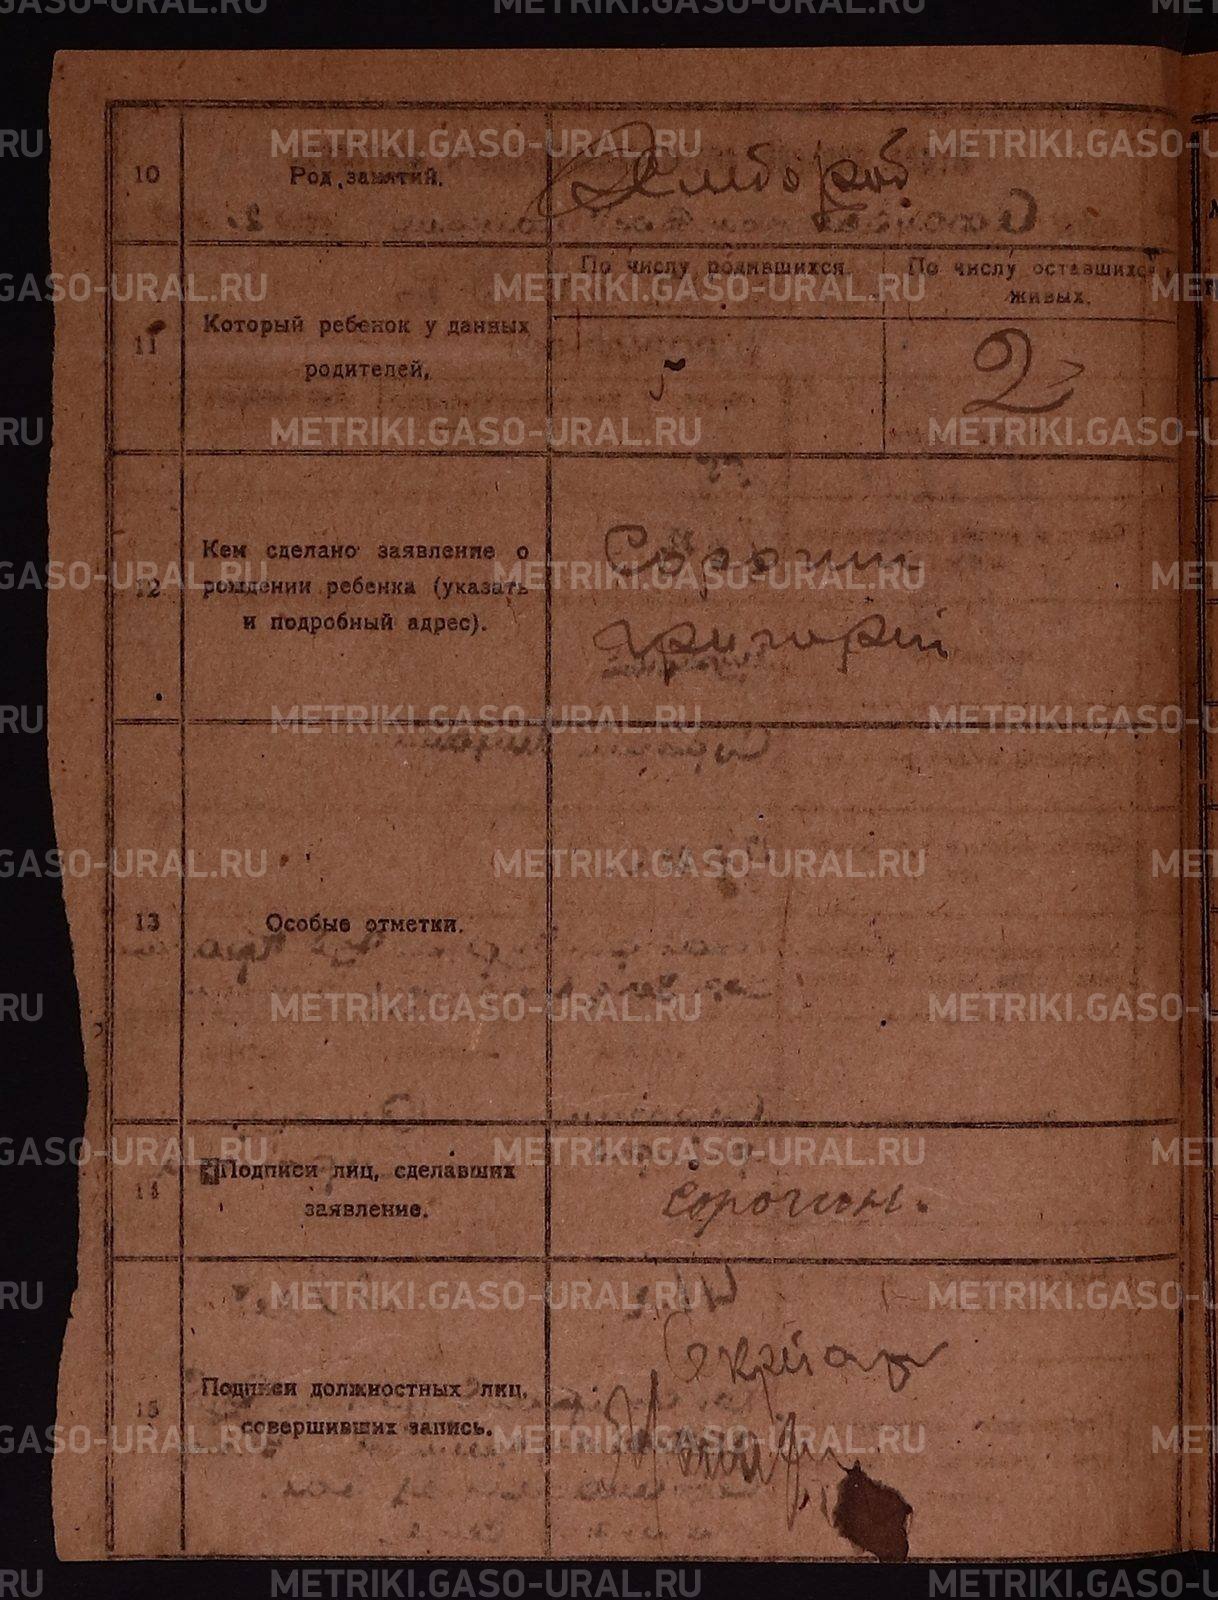 10
Род занятий.
Хлебороб
11
Который ребенок у данных
родителей.
По числу родившихся.
По числу оставшихся
живых.
5
2
12
Кем сделано заявление о
рождении ребенка (указать
и подробный адрес).
Сорочин
григорий
13
Особые отметки.
14
Подписи лиц, сделавших
заявление.
Сорочин.
15
Подписи должностных лиц,
совершивших запись.
METRIKI.GASO-URAL.RU